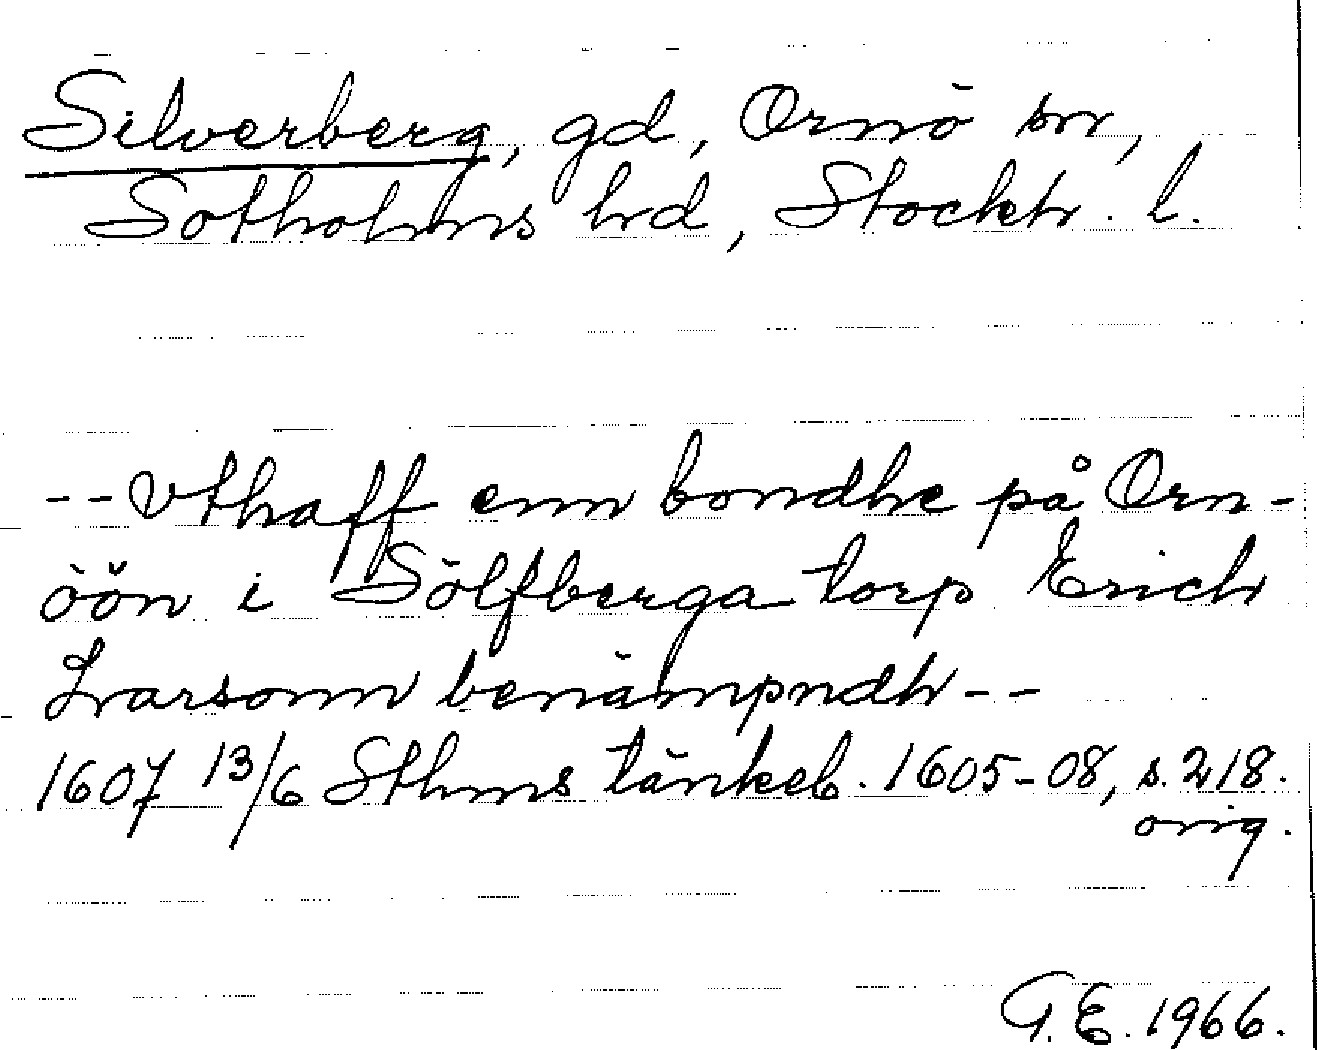 Silverberg, gd, Ornö sn,
Sotholms hrd, Stockh. l.
-- Vthaff enn bondhe på Orn-
öön i Sölfberga torp Erich
Larsonn benämpndh --
1607 13/6 Sthms tänkeb. 1605-08, s. 218.
orig.
G.E. 1966.